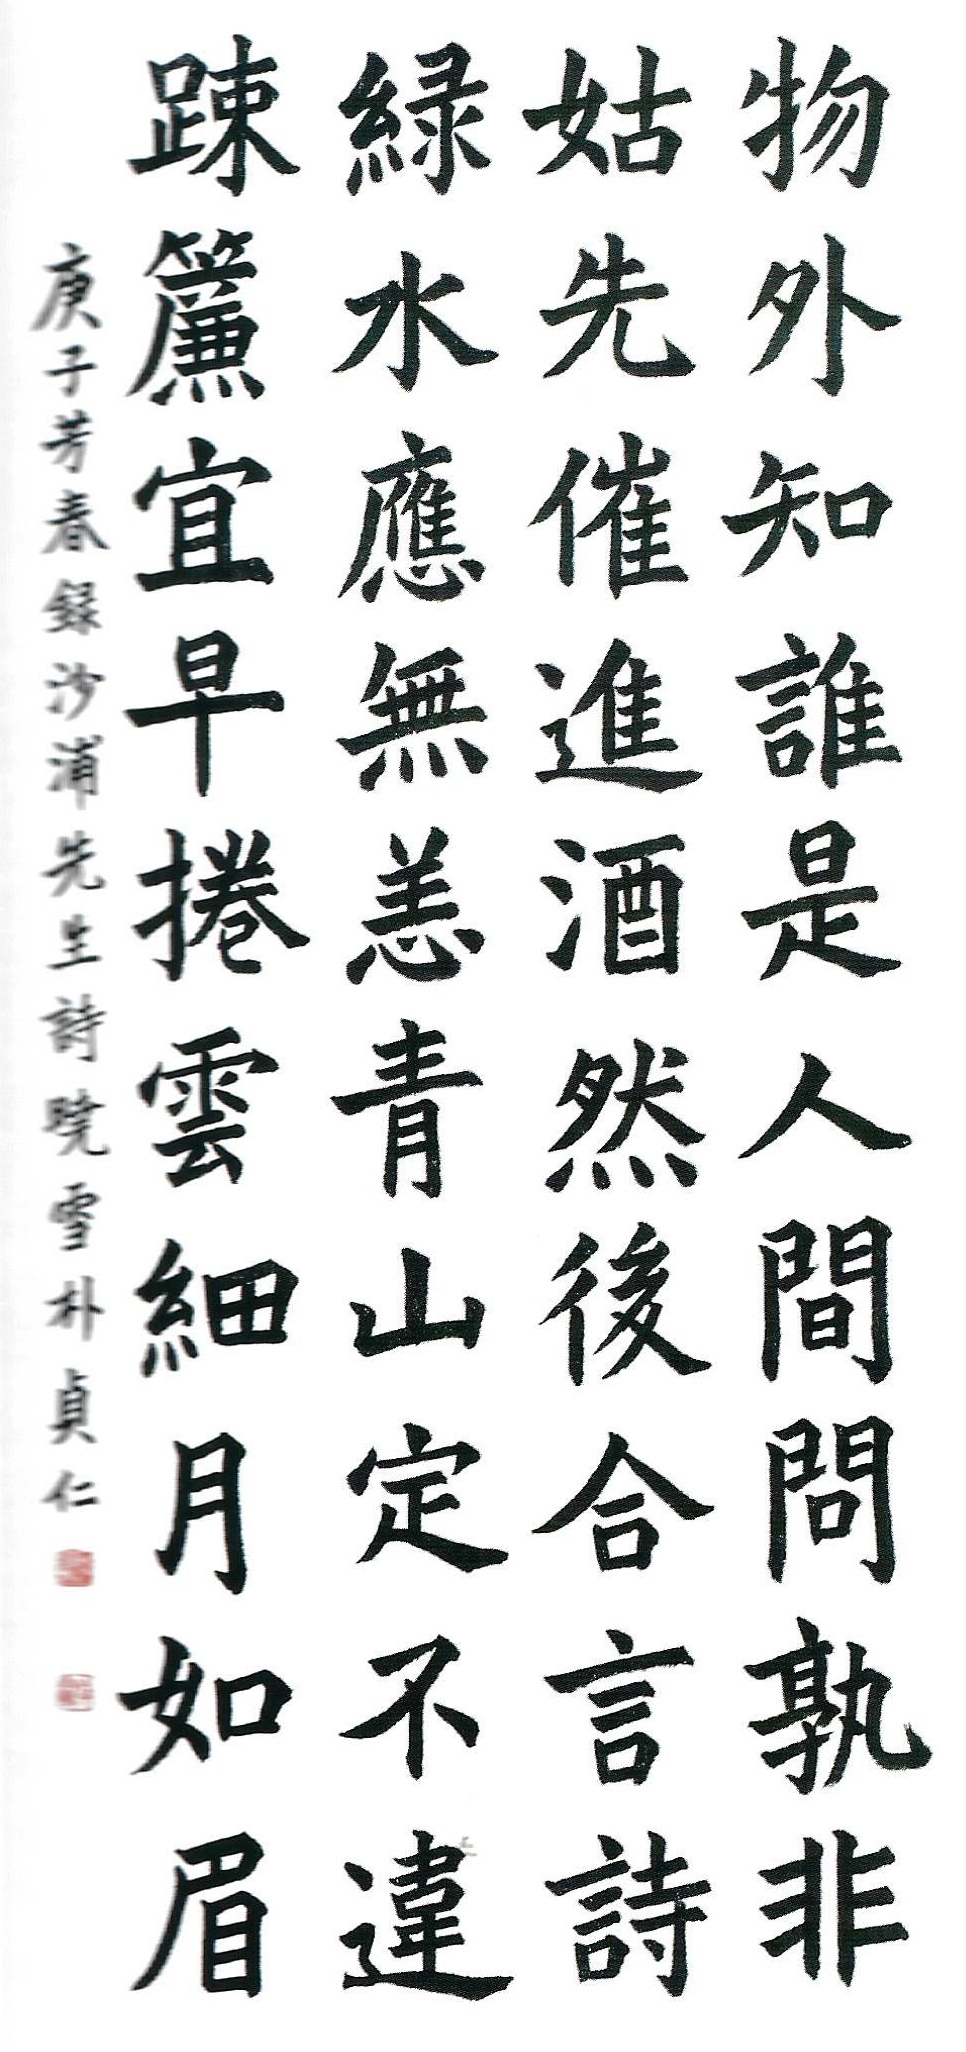 物外知誰是人間問孰非
姑先催進酒然後合言詩
綠水應無恙青山定不違
踈簾宜早捲雲細月如眉
庚子芳春錄沙浦先生詩曉雪朴貞仁